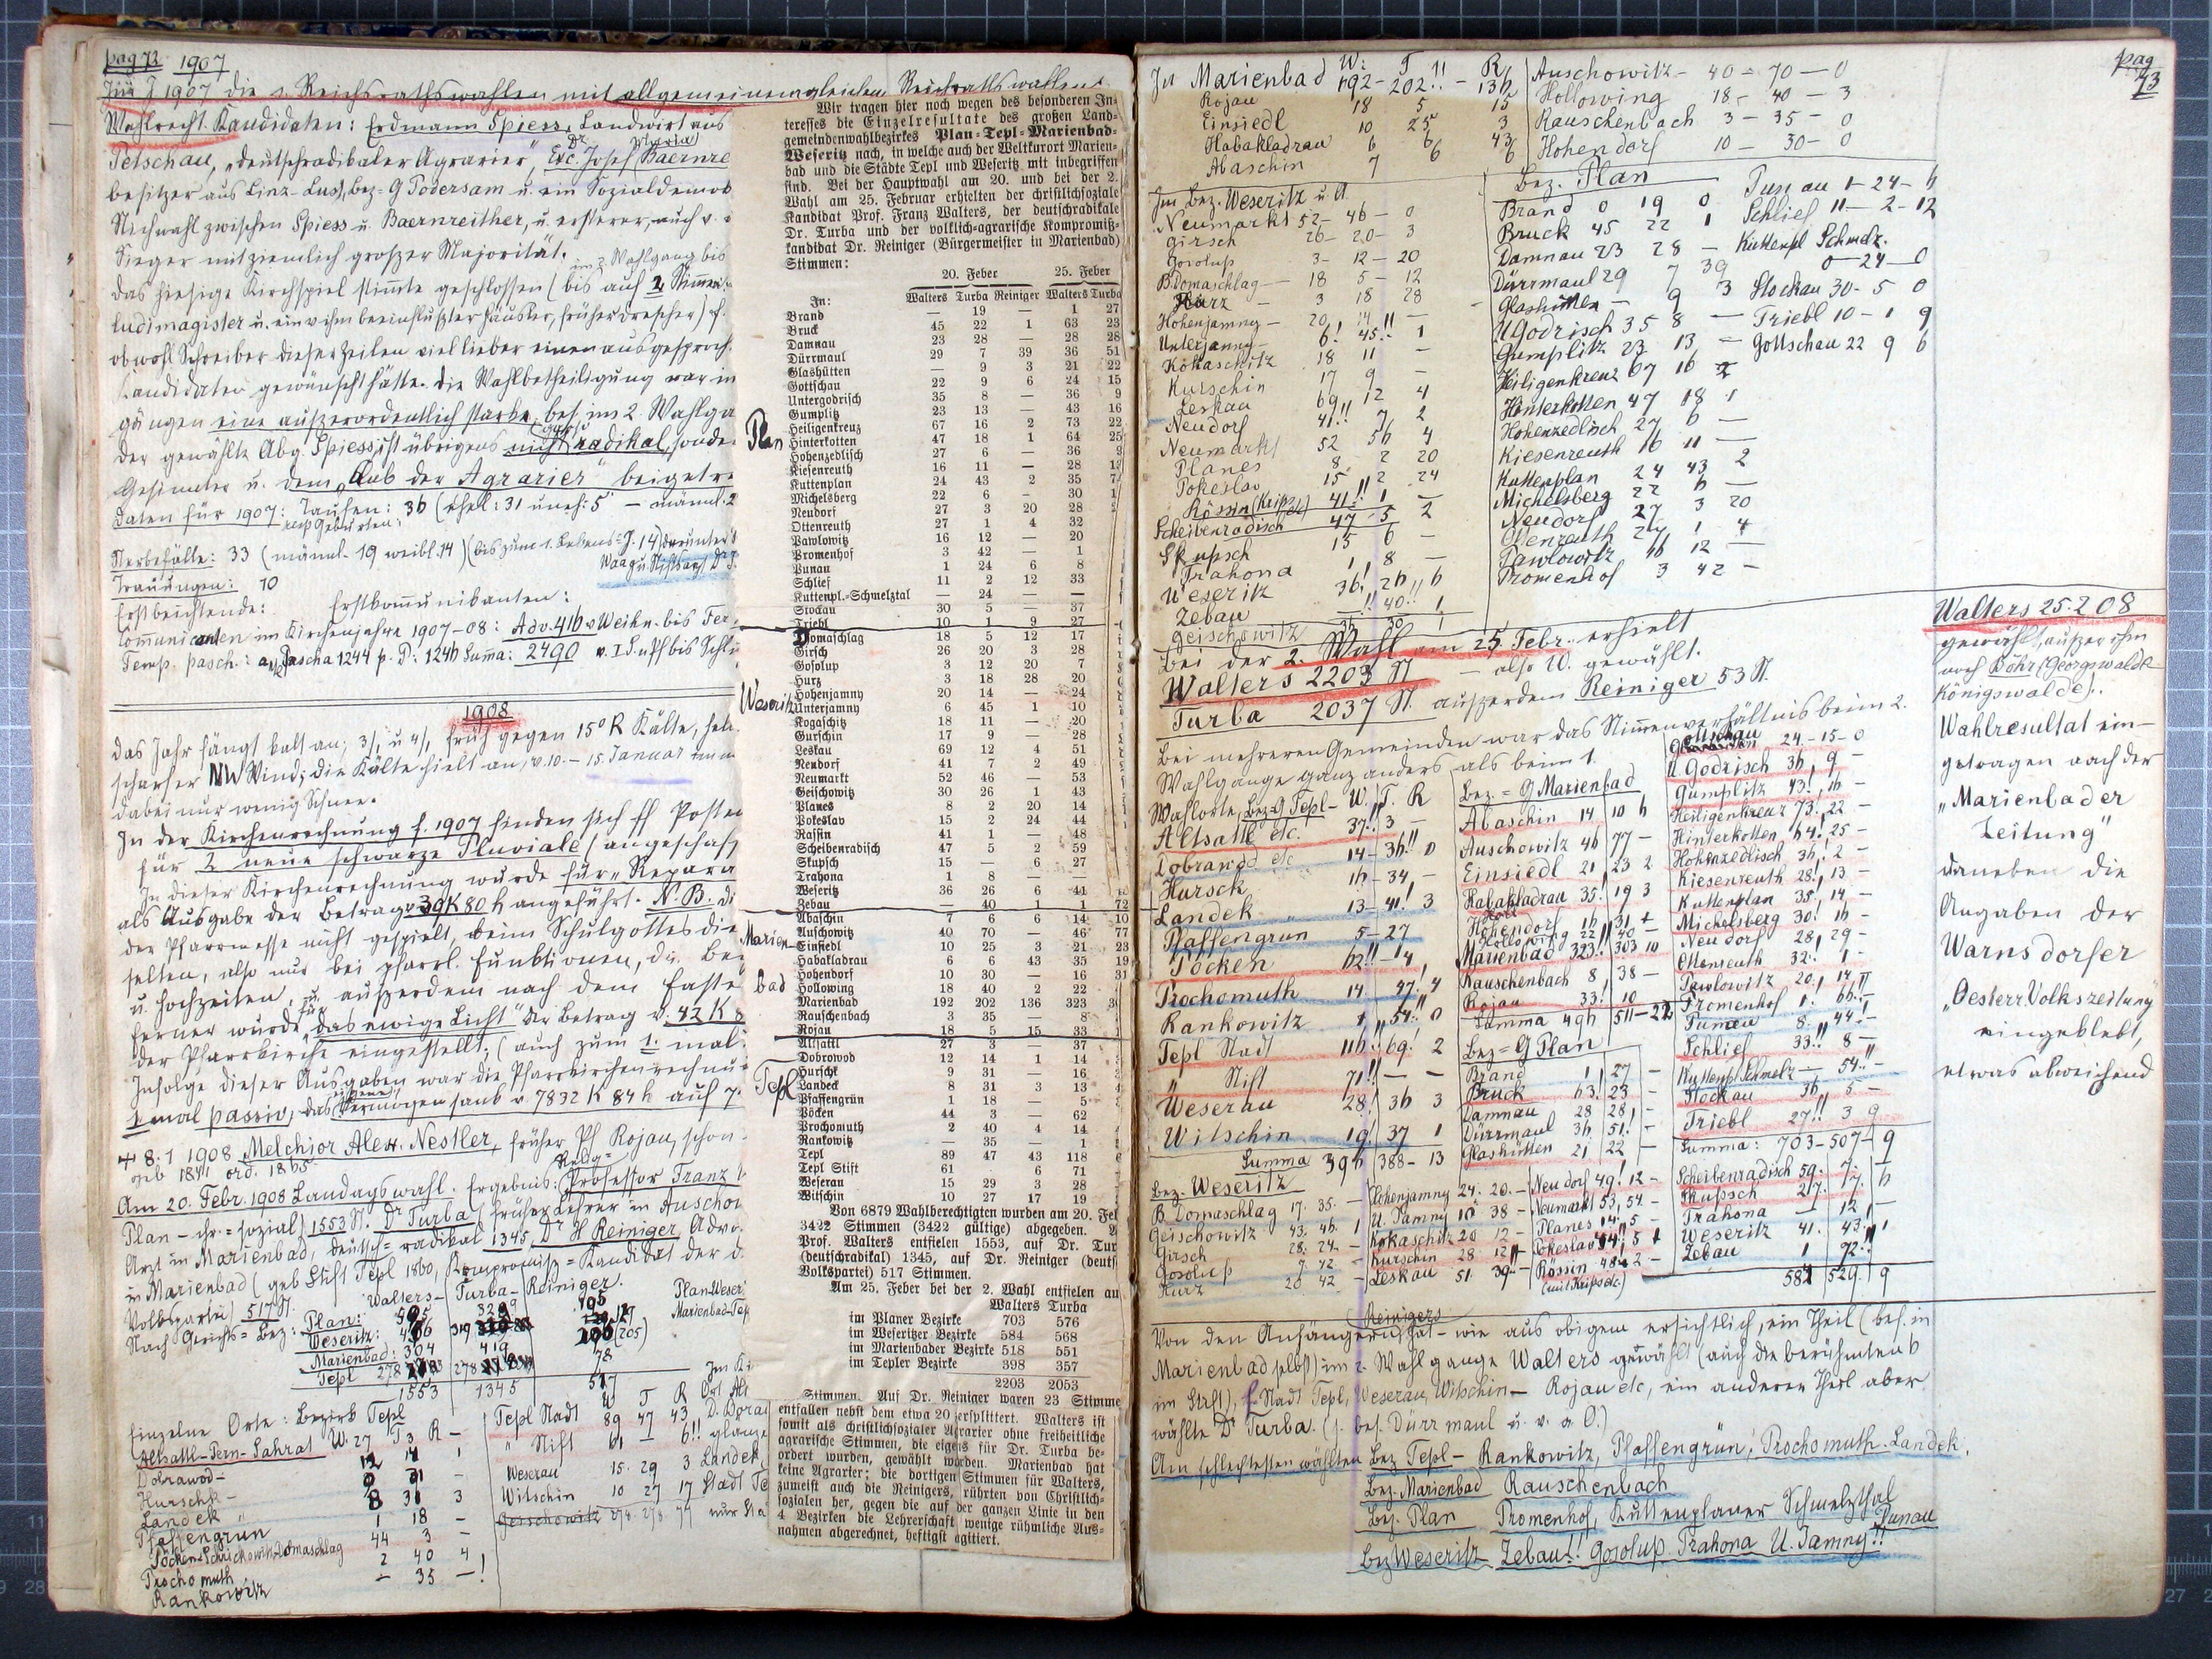 pag 72 1907
Im J 1907 die 1. Reichsrathswahlen mit allgemeinem gleichen Reichsrathswahlen
Wahlrecht. Kandidaten: Erdmann Spiess, Landwirt aus
Petschau, "deutschradikaler Agrarier", Exc. Dr Josef Maria Baernre
besitzer aus Linz-Lus), Bez-G Podersam u. ein Sozialdemok
Stichwahl zwischen Spiess u Baernreither, u. ersterer, auch v.
Sieger mit ziemlich großer Majorität.
das hiesige Kirchspiel stimmte geschlossen (bis auf 2 Stimmen im 2 Wahlgang bis
ludimagister u. ein v ihm beeinflußter Häusler, früher Drescher) f.
obwohl Schreiber dieser Zeilen viel lieber einen ausgesproch.
Kandidaten gewünscht hätte. Die Wahlbetheiligung war in
gängen eine außerordentlich starke, bes. im 2. Wahlga
der gewählte Abg. Spiess ist übrigens nicht radikal, sonde
Gesinnter u. dem "Club der Agrarier" beigetre
Daten für 1907: Taufen: 36 (ehel: 31 uneh: 5 - männl. 2
resp Geburten:
Sterbefälle: 33 (männl. 19 weibl. 14) (bis zum 1. Lebens-J. 14) darunter
Trauungen: 10
Erstbeichtende: Erstkommunikanten:
Communicanten im Kirchenjahre 1907-08: Adv. 416 v Weihn. bis Fer
Temp. pasch.: Pascha 1244 p. P: 1246 Summa: 2490
1908
Das Jahr fängt kalt an; 3/1 u 4/1 früh gegen 15° R Kälte,
scharfer NW Wind; die Kälte hielt an, v. 10. - 15. Januar
dabei nur wenig Schnee.
In der Kirchenrechnung f. 1907 finden sich ff Posten
für 2 neue schwarze Pluviale (angeschaff
In dieser Kirchenrechnung wurde für "Repara
als Ausgabe der Betrag v 39K 80h angeführt. N.B. di
der Pfarrmesse nicht gespielt, beim Schulgottesdie
selten, also nur bei pfarrl. Funktionen, d. i. Be
u. Hochzeiten, u. außerdem nach dem Faste
ferner wurde für "das ewige Licht" der Betrag v. 42 K 8
der Pfarrkirche eingestellt; (auch zum 1. mal
Infolge dieser Ausgaben war die Pfarrkirchenrechnu
1 mal passiv, das Vermögen sank v 7832 K 84h auf 7.
† 8. 1 1908 Melchior Alex. Nestler, früher Pf Rojau, schon
geb 1841 ord. 1865
Am 20. Febr. 1908 Landtagswahl. Ergebnis: Relig= Professor Franz
Plan - chr.=sozial) 1553 St. Dr Turba (früher Lehrer in Auschow
Arzt in Marienbad, deutsch=radikal 1345, Dr H Reiniger, Advo
in Marienbad (geb Stift Tepl 1860, Kompromiß=Kandidat der d.
Volkspartei) 517 St.
Nach Gerichts=Bez: Walters- Turba- Reiniger.
Plan:
Weseritz:
Marienbad: 304 419
Tepl 278 278 78
1553 1345 517
Einzelne Orte: Bezirk Tepl
Altsattl-Fern-Sahrat W. 27 T 3 R -
Dobrawod- 12 14 1
Hurschk-
Landek 8 31 3
Pfaffengrün 1 18 -
Pocken-Schrikowitz-Domaschlag 44 3 -
Prochomuth 2 40 4
Rankowitz - 35 -!
W T R
Tepl Stadt 89 47 43
" Stift 61 - 6!!
Weserau 15. 29 3
Witschin 10 27 17
Wir tragen hier noch wegen des besonderen In-
teresses die Einzelresultate des großen Land-
gemeindenwahlbezirkes Plan-Tepl-Marienbad-
Weseritz nach, in welche auch der Weltkurort Marien-
bad und die Städte Tepl und Weseritz mit inbegriffen
sind. Bei der Hauptwahl am 20. und bei der 2.
Wahl am 25. Februar erhielten der christlichsoziale
Kandidat Prof. Franz Walters, der deutschradikale
Dr. Turba und der volklich-agrarische Kompromiß-
kandidat Dr. Reiniger (Bürgermeister in Marienbad)
Stimmen:
20. Feber 25. Feber
In: Walters Turba Reiniger Walters Turba
Brand — 19 — 1 27
Bruck 45 22 1 63 23
Damnau 23 28 — 28 28
Dürrmaul 29 7 39 36 51
Glashütten — 9 3 21 22
Gottschau 22 9 6 24 15
Untergodrisch 35 8 — 36 9
Gumplitz 23 13 — 43 16
Heiligenkreuz 67 16 2 73 22
Plan
Hinterkotten 47 18 1 64 25
Hohenzedlisch 27 6 — 36 9
Kiesenreuth 16 11 — 28 13
Kuttenplan 24 43 2 35 7
Michelsberg 22 6 — 30 1
Neudorf 27 3 20 28
Ottenreuth 27 1 4 32
Pawlowitz 16 12 — 20
Promenhof 3 42 — 1
Punau 1 24 6 8
Schlief 11 2 12 33
Kuttenpl.-Schmelztal — 24 — —
Stockau 30 5 — 37
Triebl 10 1 9 27
Domaschlag 18 5 12 17
Girsch 26 20 3 28
Gosolup 3 12 20 7
Hurz 3 18 28 20
Hohenjamny 20 14 — 24
Weseritz
Unterjamny 6 45 1 10
Kogaschitz 18 11 — 20
Gurschin 17 9 — 28
Leskau 69 12 4 51
Neudorf 41 7 2 49
Neumarkt 52 46 — 53
Geischowitz 30 26 1 43
Planes 8 2 20 14
Pokeslav 15 2 24 44
Rassin 41 1 — 48
Scheibenradisch 47 5 2 59
Skupsch 15 — 6 27
Trahona 1 8 — —
Weseritz 36 26 6 41
Zebau — 40 1 1 72
Abaschin 7 6 6 14 10
Auschowitz 40 70 — 46 77
Marien-
Einsiedl 10 25 3 21 23
Habakladrau 6 6 43 35 19
Hohendorf 10 30 — 16 31
bad
Hollowing 18 40 2 22
Marienbad 192 202 136 323
Rauschenbach 3 35 — 8
Rojau 18 5 15 33
Altsattl 27 3 — 37
Dobrowod 12 14 1 14
Hurschk 9 31 — 16
Tepl
Landeck 8 31 3 13
Pfaffengrün 1 18 — 5
Pöcken 44 3 — 62
Prochomuth 2 40 4 14
Rankowitz — 35 — 1
Tepl 89 47 43 118
Tepl Stift 61 · 6 71
Weseran 15 29 3 28
Witschin 10 27 17 19
Von 6879 Wahlberechtigten wurden am 20. Fel
3422 Stimmen (3422 gültige) abgegeben.
Prof. Walters entfielen 1553, auf Dr. Tur
(deutschradikal) 1345, auf Dr. Reiniger (deuts
Volkspartei) 517 Stimmen.
Am 25. Feber bei der 2. Wahl entfielen au
Walters Turba
im Planer Bezirke 703 576
im Weseritzer Bezirke 584 568
im Marienbader Bezirke 518 551
im Tepler Bezirke 398 357
2203 2053
Stimmen. Auf Dr. Reiniger waren 23 Stimme
entfallen nebst dem etwa 20 zersplittert. Walters ist
somit als christlichsozialer Agrarier ohne freiheitliche
agrarische Stimmen, die eigens für Dr. Turba be-
ordert wurden, gewählt worden. Marienbad hat
keine Agrarier; die dortigen Stimmen für Walters,
zumeist auch die Reinigers, rührten von Christlich-
sozialen her, gegen die auf der ganzen Linie in den
4 Bezirken die Lehrerschaft wenige rühmliche Aus-
nahmen abgerechnet, heftigst agitiert.
pag 73
W: T R
In Marienbad 192-202!!-136
Rojau 18 5 15
Einsiedl 10 25 3
Habakladrau 6 6 43
Abaschin 7 6 6
Auschowitz- 40-70-0
Hollowing 18- 40-3
Rauschenbach 3-35-0
Hohendorf 10-30-0
Im Bez. Weseritz u. A.
Neumarkt 52-46-0
Girsch 26-20-3
Gosolup 3-12-20
B. Domaschlag- 18 5-12
Hurz - 3 18 28
Hohenjamny- 20 14!! -
Unterjamny- 6! 45!! 1
Kokaschitz 18 11 -
Kurschin 17 9 -
Leskau 69 12 4
Neudorf 41!! 7 2
Neumarkt 52
Planes 8 2 20
Pokeslav 15 2 24
Rössin (Krips etc) 41!! 1 -
Scheibenradisch 47-5 2
Skupsch 15 6 -
Trahona 1 8 -
Weseritz 36! 26 6
Zebau -!! 40!! 1
Geischowitz 30 1
Bez. Plan
Brand 0 19 0
Bruck 45 22 1
Damnau 23 28 -
Dürrmaul 29 7 39
Glashütten - 9 3
U Godrisch 35 8 -
Gumplitz 23 13 -
Heiligenkreuz 67 16 2
Hinterkotten 47 18 1
Hohenzedlisch 27 6 -
Kiesenreuth 16 11 -
Kuttenplan 24 43 2
Michelsberg 22 6 -
Neudorf 27 3 20
Ottenreuth 27 1 4
Pawlowitz 16 12 -
Promenhof 3 42 -
Punau 1-24-6
Schlief 11-2-12
Kuttenpl Schmelz.
0-24-0
Stockau 30-5 0
Triebl 10-1 9
Gottschau 22 9 6
Bei der 2. Wahl am 25 Febr. erhielt
Walters 2203 St - also W. gewählt.
Turba 2037 St. außerdem Reiniger 53 St.
Bei mehreren Gemeinden war das Stimmenverhältnis beim 2.
Wahlgange ganz anders als beim 1.
Wahlorte, Bez-G Tepl- W. T. R
Altsattl etc. 37!! 3 -
Dobrawod etc 14-36!! 0
Hursck 16-34, -
Landek 13-41! 3
Pfaffengrün 5-27
Pöcken 62!!-4
Prochomuth 14 47. 4
Rankowitz 1 54!! 0
Tepl Stadt 116!! 69! 2
" Stift 71!! - -
Weserau 28! 36 3
Witschin 19! 37 1
Summa 396 388-13
Bez.=G Marienbad
Abaschin 14 10 6
Auschowitz 46 77 -
Einsiedl 21 23 2
Habakladrau 35! 19 3
Hohendorf 16 31 +
Hollowing 22 40 -
Marienbad 323!! 303 10
Rauschenbach 8 38 -
Rojau 33! 10 -
Summa 496 511-22
Bez=G Plan
Brand 1 27 -
Bruck 63! 23 -
Damnau 28 28 -
Dürrmaul 36 51! -
Glashütten 21 22 -
Gottschau 24-15-0
U. Godrisch 36, 9 -
Gumplitz 43!, 16 -
Heiligenkreuz 73! 22 -
Hinterkotten 64! 25 -
Hohenzedlisch 36,! 2 -
Kiesenreuth 28! 13 -
Kuttenplan 35, 14 -
Michelsberg 30! 16 -
Neudorf 28, 29 -
Ottenreuth 32! 1 -
Pawlowitz 20, 14 -
Promenhof 1. 66!! -
Punau 8. 44! -
Schlief 33!! 8 -
Kuttenpl Schmelz - 54!!
Stockau 36 5 -
Triebl 27!! 3 9
Summa: 703-507-9
Bez. Weseritz
B. Domaschlag 17. 35. -
Geischowitz 43. 46. 1
Girsch 28. 24. -
Gosolup 7. 42 -
Hurz 20 42 -
Hohenjamny 24. 20. -
U. Jamny 10 38 -
Kokaschitz 20 12 -
Kurschin 28 12 -
Leskau 51. 39 -
Neudorf 49! 12 -
Neumarkt 53, 54. -
Planes 14. 5 -
Pokeslav 44!! 5 1
Rössin 48 2 -
(mit Krips etc)
Scheibenradisch 59. 7. -
Skupsch 27. 17. 6
Trahona - 12 -
Weseritz 41. 43. 1
Zebau 1 72!!
584 529 9
Walters 25.2 08
gewählt, außer ihm
noch Bohr (Georgswalde-
Königswalde).
Wahlresultat ein-
getragen nach der
"Marienbader
Zeitung"
daneben die
Angaben der
Warnsdorfer
"Oesterr. Volkszeitung"
eingeklebt,
etwas abweichend
Von den Anhängern Reinigers hat - wie aus obigem ersichtlich, ein Theil (bes. in
Marienbad selbst) im 2. Wahlgange Walters gewählt (auch die berühmten 6
im Stift), Stadt Tepl, Weserau, Witschin - Rojau etc, ein anderer Theil aber
wählte Dr Turba. (s. bes. Dürrmaul u. v. a. O.)
Am schlechtesten wählten Bez Tepl - Rankowitz, Pfaffengrün, Prochomuth. Landek.
Bez. Marienbad Rauschenbach
Bez. Plan Promenhof, Kuttenplaner Schmelzthal Punau
Bez Weseritz Zebau!! Gosolup. Trahona U. Jamny!!